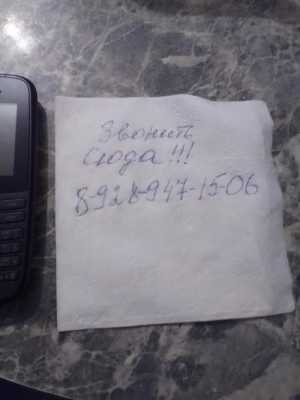 Звонить
сюда!!!
8-928-947-15-06